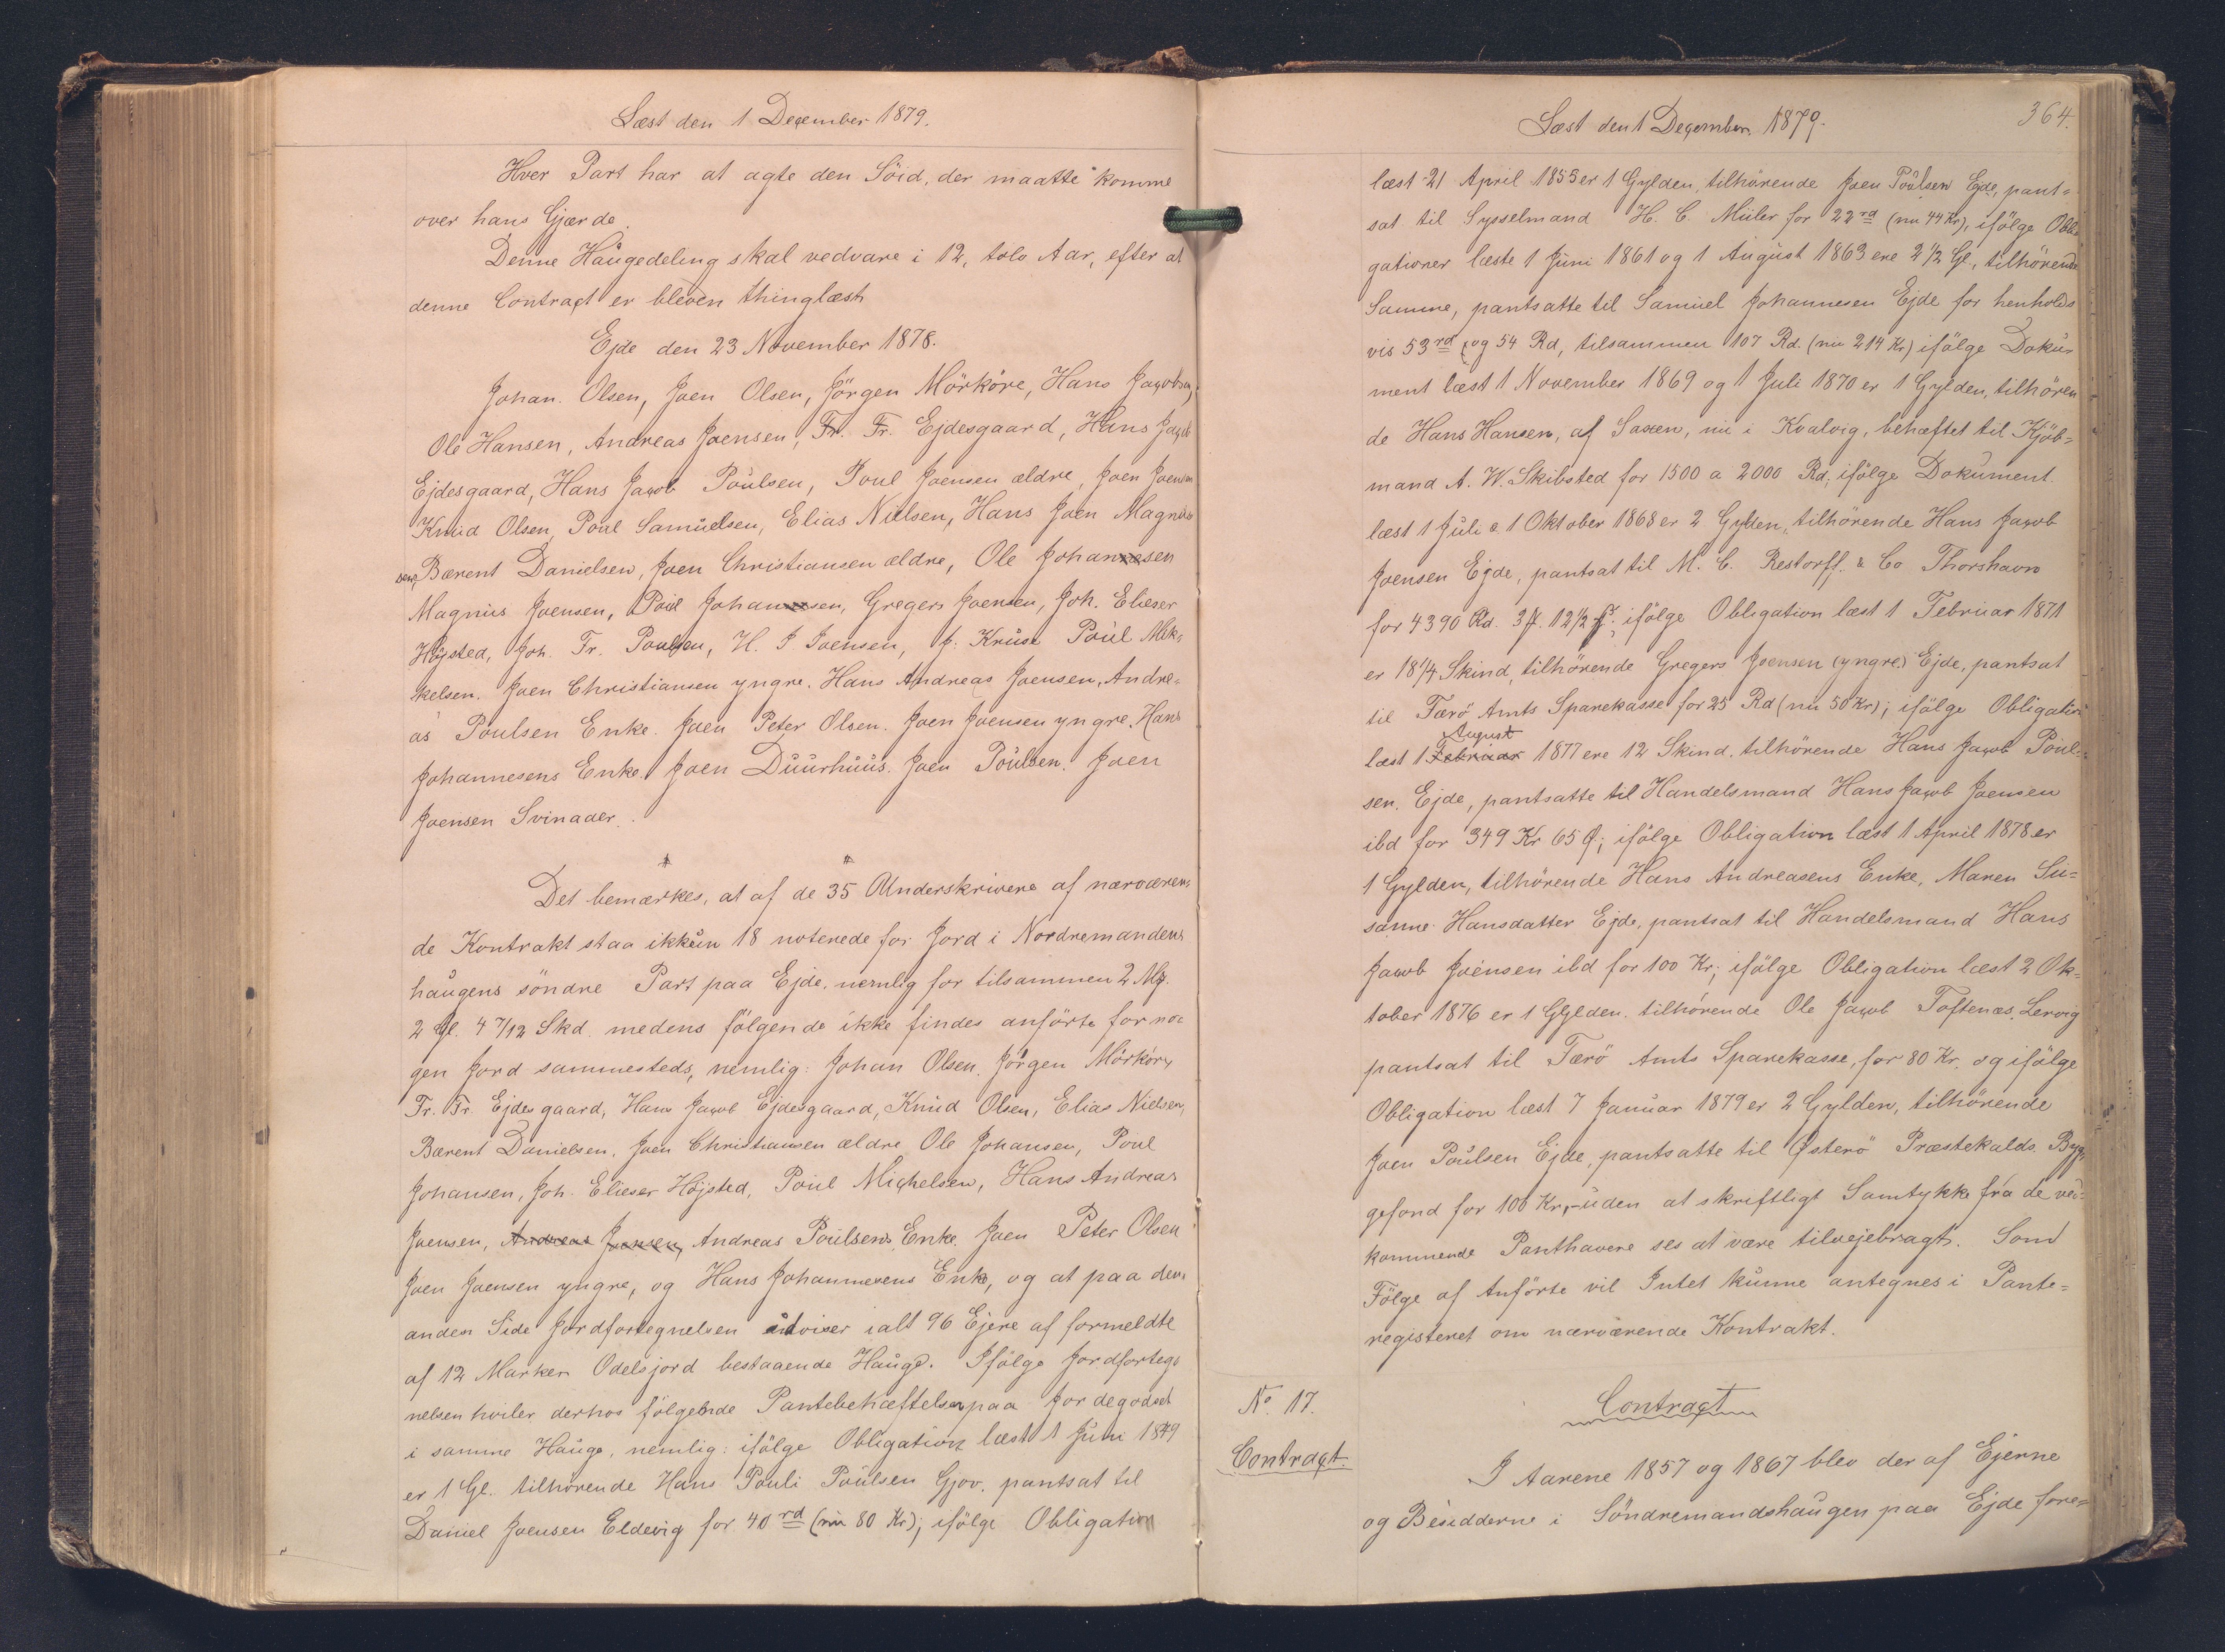 Læst den 1 December 1879.
Hver Part har at agte den Söid, der maatte komme
over hans Gjærde.
Denne Haugedeling skal vedvare i 12, tolv Aar, efter at
denne Contract er bleven thinglæst
Ejde den 23 November 1878.
Johan. Olsen, Joen Olsen, Jörgen Mörköre, Hans Jacobsen,
Ole Hansen, Andreas Joensen, Fr. Fr. Ejdesgaard, Hans Jacob
Ejdesgaard, Hans Jacob Poulsen, Poul Joensen ældre, Joen Joensen
Knud Olsen, Poul Samuelsen, Elias Nielsen, Hans Joen Magnus
sen, Bærent Danielsen, Joen Christiansen ældre, Ole Johannesen
Magnus Joensen, Poul Johannesen, Gregers Joensen, Joh. Elieser
Höjsted, Joh. Fr. Poulsen, H. J Joensen, J. Kruse Poul Mik-
kelsen. Joen Christiansen yngre. Hans Andreas Joensen, Andre-
as Poulsen Enke. Joen Peter Olsen. Joen Joensen yngre. Hans
Johannesens Enke. Joen Duurhuus. Joen Poulsen. Joen
Joensen Svinaaer.
Det bemærkes, at af de 35 Underskrivere af nærværen-
de Kontrakt staa ikkun 18 noterede for Jord i Nordremandens
haugens söndre Part paa Ejde, nemlig for tilsammen 2 Mg.
2 Gl. 4 7/12 Skd. medens fölgende ikke findes anförte for no-
gen Jord sammesteds, nemlig: Johan Olsen, Jörgen Mörköre,
Fr. Fr. Ejdesgaard, Hans Jacob Ejdesgaard, Knud Olsen, Elias Nielsen,
Bærent Danielsen, Joen Christiansen ældre Ole Johansen, Poul
Johansen, Joh. Elieser Höjsted, Poul Michelsen, Hans Andreas
Joensen, Andreas Joensen, Andreas Poulsens Enke, Joen Peter Olsen
Joen Joensen yngre, og Hans Johannesens Enke, og at paa den
anden Side Jordfortegnelsen udviser ialt 96 Ejere af formeldte
af 12 Marker Odelsjord bestaaende Hauge. Ifölge Jordforteg-
nelsen hviler derhos fölgende Pantebehæftelser paa Jordegodset
i samme Hauge, nemlig: ifölge Obligation læst 1 Juni 1849
er 1 Gl. tilhörende Hans Pouli Poulsen Gjov, pantsat til
Daniel Joensen Eldevig for 40 rd (nu 80 Kr); ifölge Obligation
Læst den 1 December 1879.
364.
læst 21 April 1855 er 1 Gylden, tilhörende Joen Poulsen Ejde, pant-
sat til Sysselmand H. C. Müler for 22 rd (nu 44 Kr), ifölge Obli-
gationer læste 1 Juni 1861 og 1 August 1863 ere 2 1/2 Gl., tilhörende
Samme, pantsatte til Samuel Johannesen Ejde for henholds
vis 53 rd og 54 Rd, tilsammen 107 Rd. (nu 214 Kr) ifölge Doku-
ment læst 1 November 1869 og 1 Juli 1870 er 1 Gylden, tilhören
de Hans Hansen, af Saxen, nu i Kvalvig, behæftet til Kjöb-
mand A. W. Skibsted for 1500 a 2000 Rd, ifölge Dokument
læst 1 Juli a 1 Oktober 1868 er 2 Gylden, tilhörende Hans Jacob
Joensen Ejde, pantsat til M. C. Restorff. & Co Thorshavn
for 4390 Rd. 3 . 12 1/2 ; ifölge Obligation læst 1 Februar 1871
er 18 1/4 Skind, tilhörende Gregers Joensen (yngre) Ejde, pantsat
til Færö Amts Sparekasse for 25 Rd (nu 50 Kr); ifölge Obligation
August
læst 1 Februar 1877 ere 12 Skind, tilhörende Hans Jacob Poul-
sen, Ejde, pantsatte til Handelsmand Hans Jacob Joensen
ibd for 349 Kr 65 Ø; ifölge Obligation læst 1 April 1878 er
1 Gylden, tilhörende Hans Andreasens Enke, Maren Su-
sanne Hansdatter Ejde, pantsat til Handelsmand Hans
Jacob Joensen ibd for 100 Kr; ifölge Obligation læst 2 Ok-
tober 1876 er 1 Gylden, tilhörende Ole Jacob Toftenæs, Lervig
pantsat til Færö Amts Sparekasse, for 80 Kr. og ifölge
Obligation læst 7 Januar 1879 er 2 Gylden, tilhörende
Joen Poulsen Ejde, pantsatte til Østerö Præstekalds Byg-
gefond for 100 Kr, uden at skriftligt Samtykke fra de ved-
kommende Panthavere ses at være tilvejebragt. Som
Fölge af Anförte vil Intet kunne antegnes i Pante-
registeret om nærværende Kontrakt.
No. 17.
Contract.
Contract
I Aarene 1857 og 1867 blev der af Ejerne
og Besidderne i Söndremandshaugen paa Ejde fore-